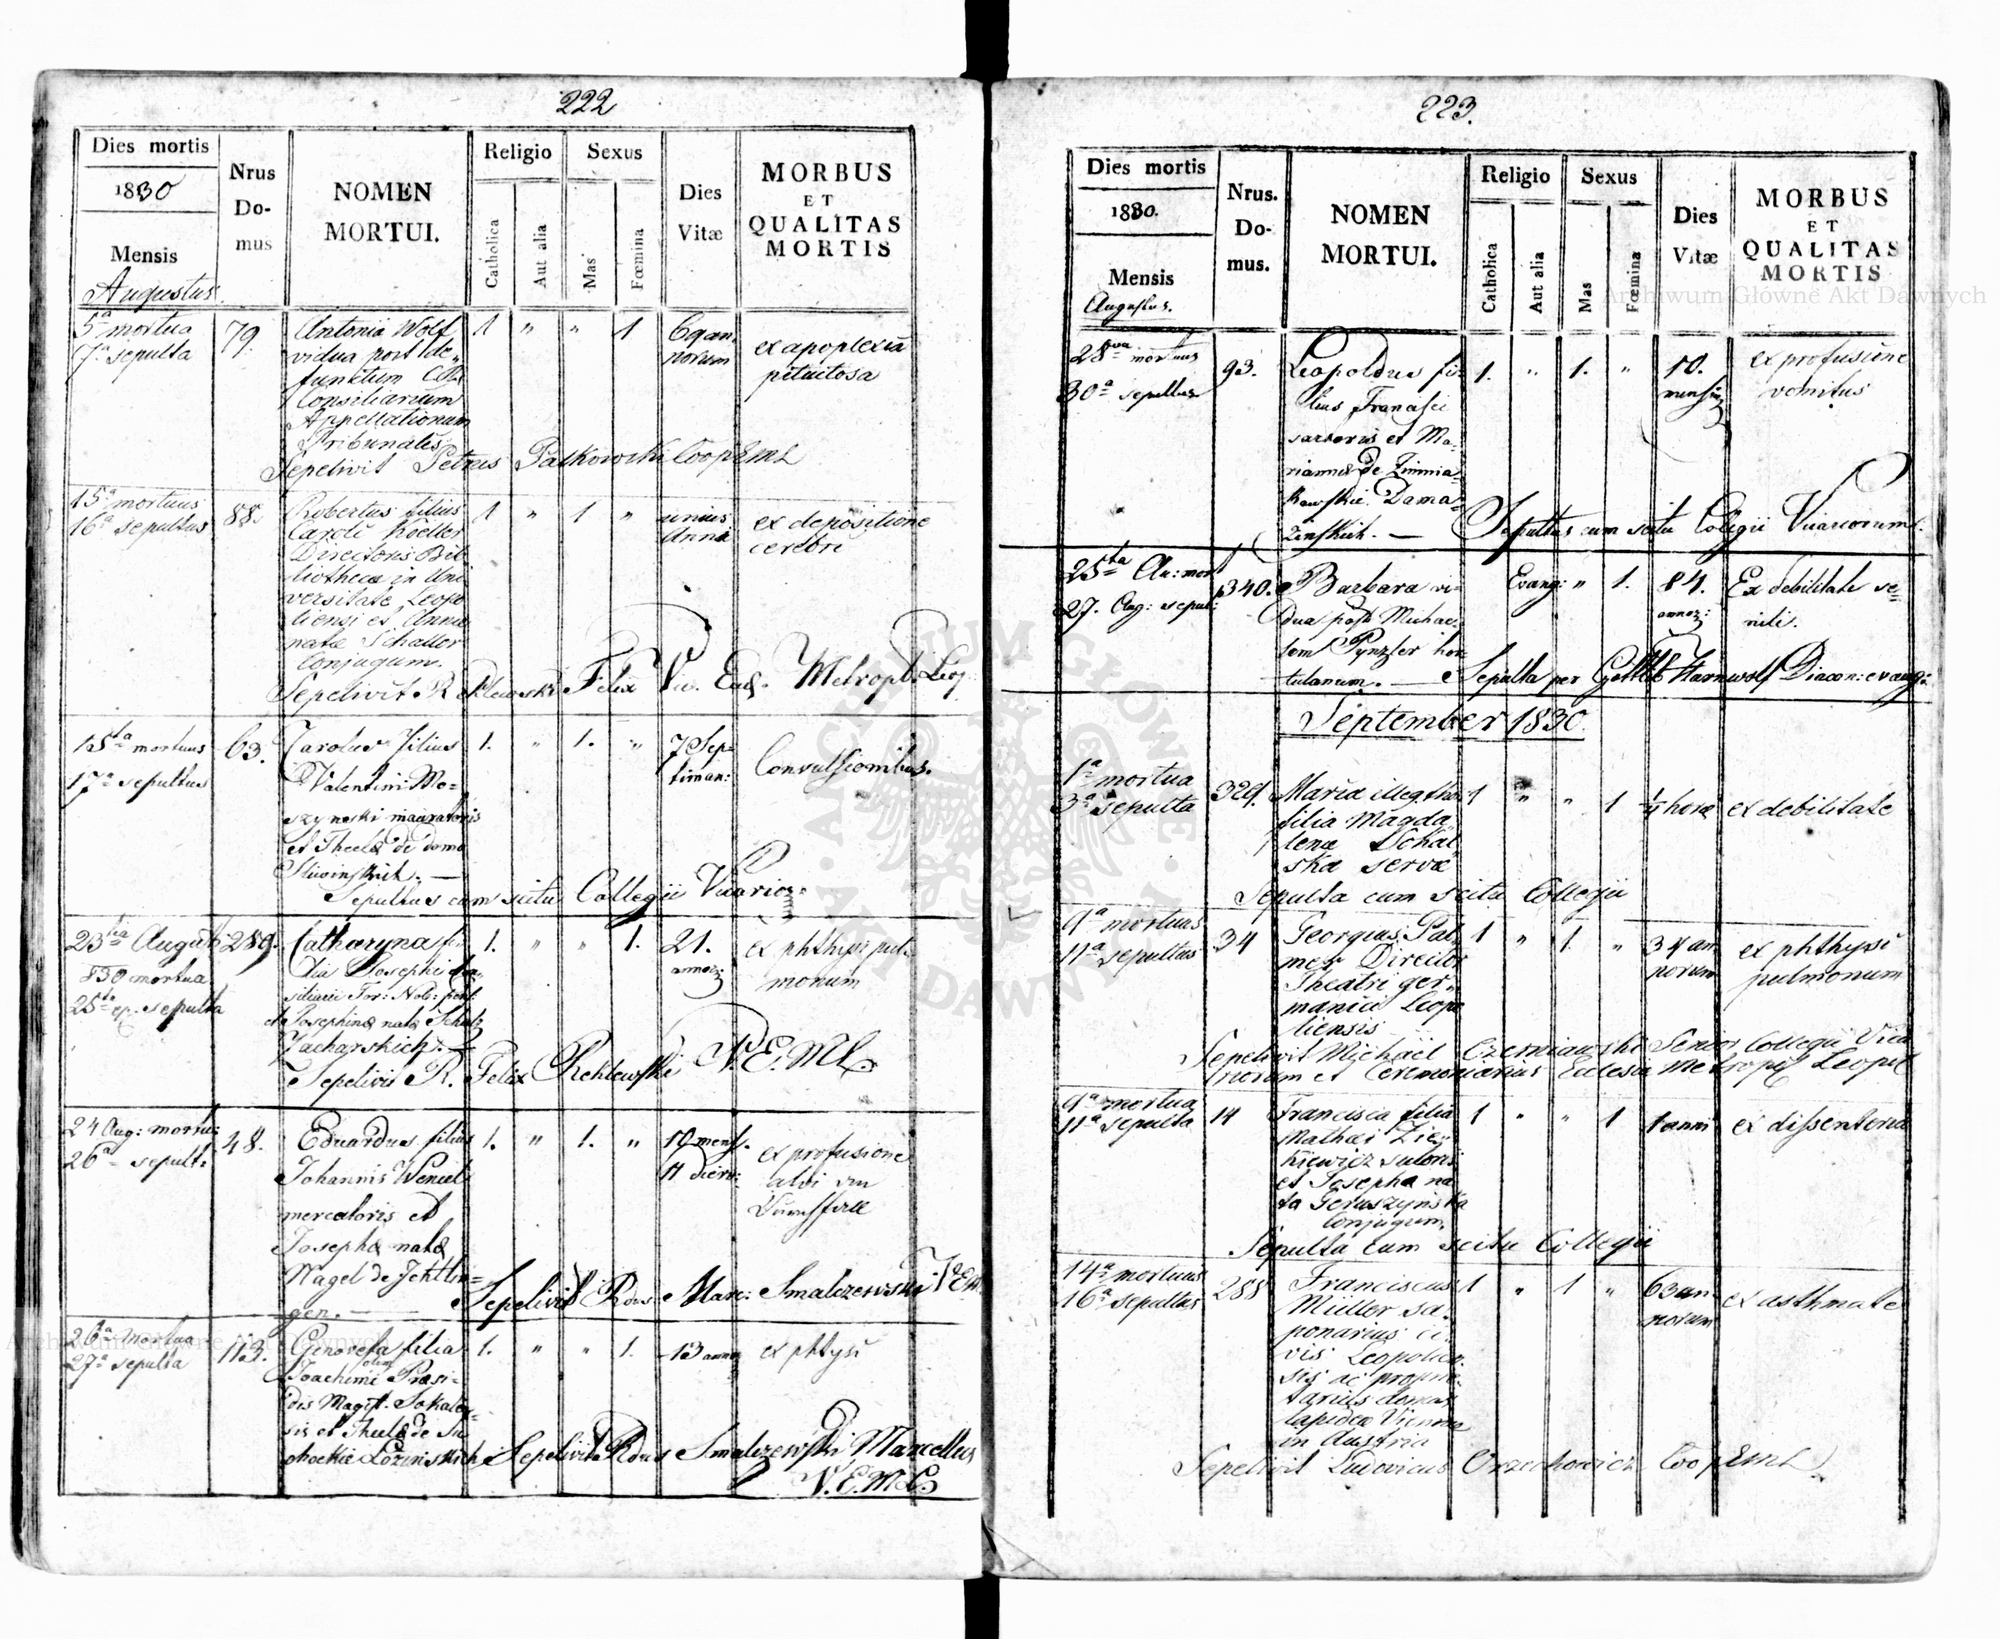 222
Dies mortis
1830
Mensis
Augustus
Nrus
Do-
mus
NOMEN
MORTUI.
Religio
Catholica
Aut alia
Sexus
Mas
Fœmina
Dies
Vitæ
MORBUS
ET
QUALITAS
MORTIS
5ª mortua
7ª sepulta
79.
Antonia Wolf
vidua post de-
functum
Consiliarium
Appellationum
Tribunalis
1 " " 1
69 an
norum
ex apoplexia
pituitosa
Sepelivit Petrus Paskowski Coop EML
15ª mortuus
16ª sepultus
88.
Robertus filius
Caroli Koeller
Directoris Bib
liothecæ in Uni
versitate Leopo
liensi et Annæ
natæ Schaller
Conjugum.
1 " 1 "
unius
Anni
ex depositione
cerebri
Sepelivit R Reklewski Felix Vic. Eccl. Metropl. Leop.
15ta mortuus
17ª sepultus
63.
Carolus filius
Valentini Mo-
szynski muratoris
et Theclæ de domo
Sliwinskich. —
1. " 1. "
7 Sep-
timan:
Convulsionibus.
Sepultus cum scitu Collegii Vicarior:
23tia Augusti
830 mortua
25ta ej. sepulta
289.
Catharyna fi-
lia Josephi
siliarii For: Nob:
et Josephinæ natæ Schultz
Zacharskich. —
1. " " 1.
21.
annor:
ex phthysi pul-
monum
Sepelivit R. Felix Reklewski V.E.ML.
24 Aug: mortu:
26ª sepult:
48.
Eduardus filius
Johannis Wencel
mercatoris et
Josephæ natæ
Nagel de Jehtlin-
gen. —
1. " 1. "
19 mens.
11 dieru:
ex profusione
alvi
Durchfall
Sepelivit Rdus Marc: Smalczewski V.E.M.
26ª mortua
27ª sepulta
113.
Genovefa filia
olim
Joachimi Præsi-
dis Magist. Sokalen-
sis et Theclæ de Su
chockie Lozinskich
1. " " 1.
13 anno
ex phtysi
Sepelivit Rdus Smalczewski Marcellus
V.E.ML
223.
Dies mortis
1830.
Mensis
Augustus.
Nrus.
Do-
mus.
NOMEN
MORTUI.
Religio
Catholica
Aut alia
Sexus
Mas
Fœmina
Dies
Vitæ
MORBUS
ET
QUALITAS
MORTIS
28va mortuus
30ª sepultus
93.
Leopoldus fi-
lius Francisci
sartoris et Ma-
riannæ de Zimnia-
kowskie Dama-
zinskich. —
1. " 1. "
10.
mensiu
ex profusione
vomitus
Sepultus cum scitu Collegii Vicariorum.
25ta Au: mort
27. Aug: sepul:
340.
Barbara vi-
dua post Michae-
lem Pynzler hor
tulanum. —
Evang: " 1.
84.
annor:
Ex debilitate se-
nili.
Sepulta per Gottlb Harnwolf Diacon: evang:
September 1830
1ª mortua
3ª sepulta
329.
Maria illegthi
filia Magda
lenæ Dokal
ska servæ
1 " " 1
¼ horæ
ex debilitate
Sepulta cum scitu Collegii
9ª mortuus
11ª sepultus
34
Georgius Pal
mer Director
Theatri ger-
manici Leopo
liensis
1 " 1 "
34 an
norum
ex phthysi
pulmonum
Sepelivit Michaël Czerniawski Senior Collegii Vica
riorum et Ceremoniarius Eclesiæ Metropol Leopol
9ª mortua
11ª sepulta
14
Francisca filia
Mathæi Zie-
kiewicz sutoris
et Josepha na
ta Geruszynska
Conjugum.
1 " " 1
1 anni
ex dissenteria
Sepulta cum scitu Collegii
14ª mortuus
16ª sepultus
288
Franciscus
Müller sa-
ponarius ci-
vis Leopolien-
sis ac proprie-
tarius domus
lapideæ Viennæ
in Austria
1 " 1 "
63 an-
norum
ex asthmate
Sepelivit Ludovicus Orzechowicz Coop EML
ARCHIWUM GŁÓWNE AKT DAWNYCH
Archiwum Główne Akt Dawnych
Archiwum Główne Akt Dawnych